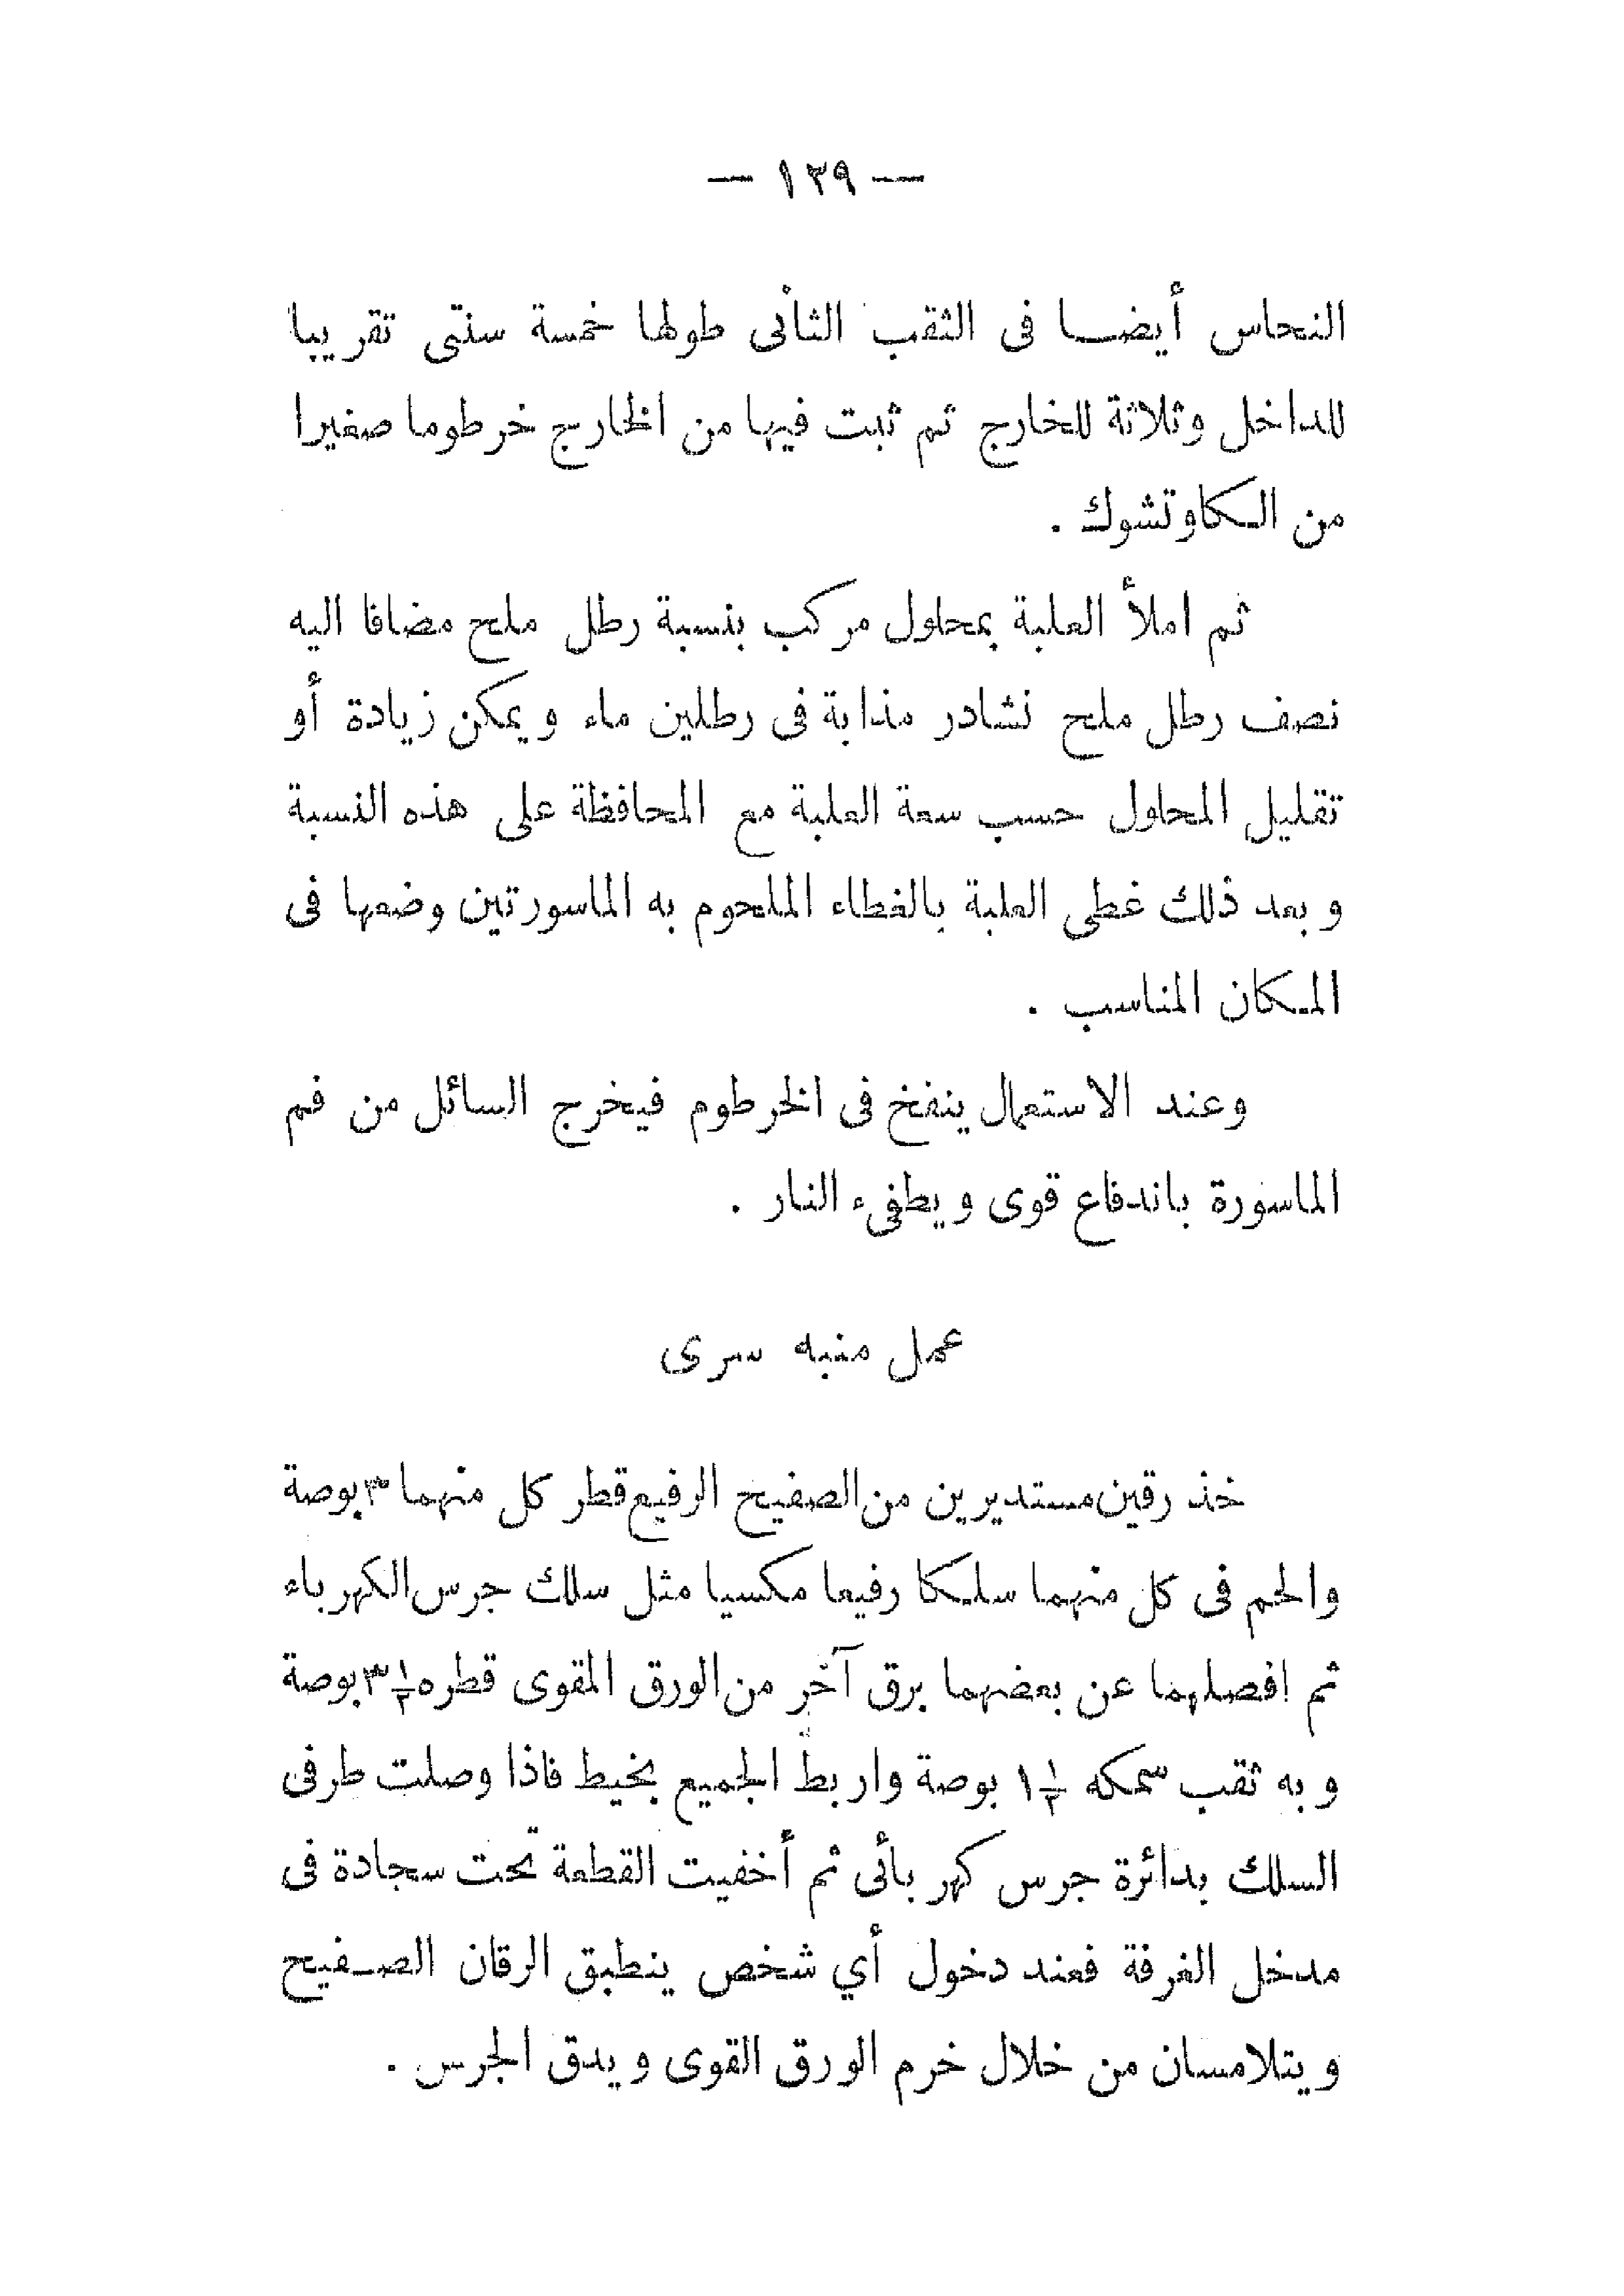 — ١٣٩ —
النحاس أيضـا فى الثقب الثانى طولها خمسة سنتى تقريبا
للداخل وثلاثة للخارج ثم ثبت فيها من الخارج خرطوما صغيرا
من الكاوتشوك .
ثم املأ العلبة بمحلول مركب بنسبة رطل ملح مضافا اليه
نصف رطل ملح نشادر مذابة فى رطلين ماء ويمكن زيادة أو
تقليل المحلول حسب سعة العلبة مع المحافظة على هذه النسبة
وبعد ذلك غطى العلبة بالغطاء الملحوم به الماسورتين وضعها فى
المكان المناسب .
وعند الاستعمال ينفخ فى الخرطوم فيخرج السائل من فم
الماسورة باندفاع قوى ويطفىء النار .
عمل منبه سرى
خذ رقين مستديرين من الصفيح الرفيع قطر كل منهما ٣ بوصة
والحم فى كل منهما سلكا رفيعا مكسيا مثل سلك جرس الكهرباء
ثم افصلهما عن بعضهما برق آخر من الورق المقوى قطره ٣½ بوصة
وبه ثقب سمكه ١½ بوصة واربط الجميع بخيط فاذا وصلت طرفى
السلك بدائرة جرس كهربأئى ثم أخفيت القطعة تحت سجادة فى
مدخل الغرفة فعند دخول أي شخص ينطبق الرقان الصـفيح
ويتلامسان من خلال خرم الورق القوى ويدق الجرس .